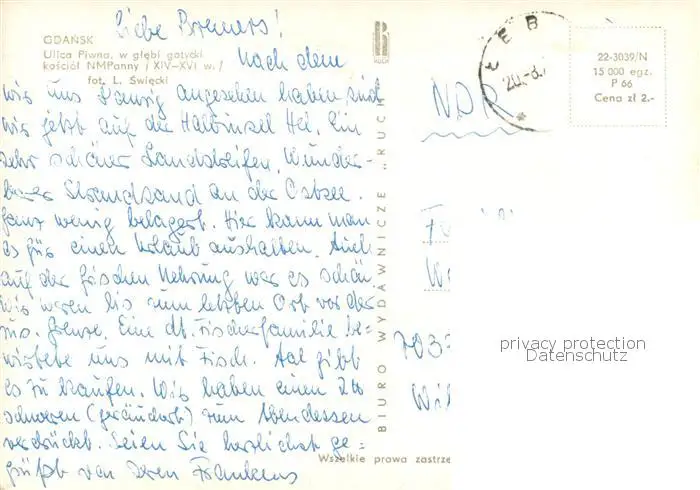 Liebe Bremers!
GDAŃSK
Ulica Piwna, w głębi gotycki
kościół NMPanny / XIV-XVI w./
fot. L. Święcki
Nach dem
wir uns Danzig angesehen haben sind
wir jetzt auf der Halbinsel Hel. Ein
sehr schöner Landstreifen. Wunder-
barer Strandsand an der Ostsee.
Ganz wenig belagert. Hier kann man
es für einen Urlaub aushalten. Auch
auf der frischen Nehrung war es schön
Wir waren bis zum letzten Ort vor der
rus. Grenze. Eine dt. Fischerfamilie be=
wirtete uns mit Fisch. Aal gibt
es zu kaufen. Wir haben einen
schweren (geräuchert) zum Abendessen
verdrückt. Seien Sie herzlichst ge=
grüßt von Ihren Frankens
RUCH
BIURO WYDAWNICZE „RUCH"
ŁEB
20.-8.
22-3039/N
15 000 egz.
P 66
Cena zł 2.-
NDR
703
privacy protection
Datenschutz
Wszelkie prawa zastrze